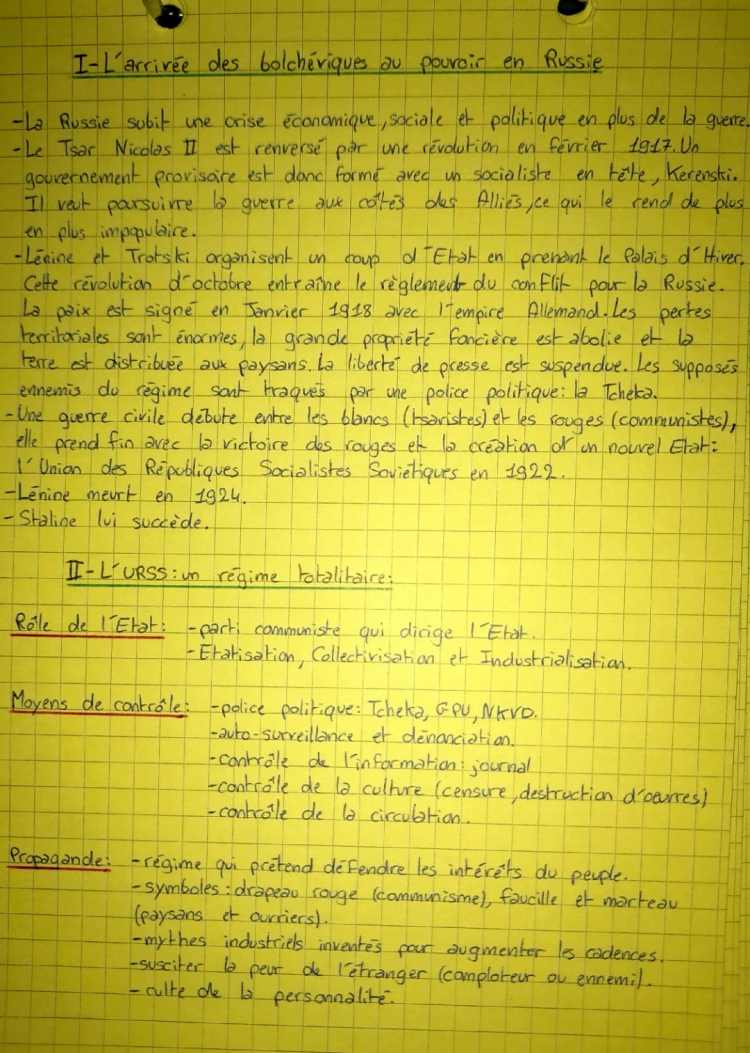 I-L'arrivée des bolchériques au pouvoir en Russie
-La Russie subit une crise économique, sociale et politique en plus de la guerre.
-Le Tsar Nicolas II est renversé par une révolution en février 1917. Un
gouvernement provisoire est donc formé avec un socialiste en tête, Kerenski.
Il veut poursuivre la guerre aux côtés des Alliés, ce qui le rend de plus
en plus impopulaire.
-Lénine et Trotski organisent un coup d'Etat en prenant le Palais d'Hiver.
Cette révolution d'octobre entraîne le règlement du conflit pour la Russie.
La paix est signé en Janvier 1918 avec l'empire Allemand. Les pertes
territoriales sont énormes, la grande propriété foncière est abolie et la
terre est distribuée aux paysans. La liberté de presse est suspendue. Les supposés
ennemis du régime sont traqués par une police politique: la Tcheka.
-Une guerre civile débute entre les blancs (tsaristes) et les rouges (communistes),
elle prend fin avec la victoire des rouges et la création d'un nouvel Etat:
l'Union des Républiques Socialistes Soviétiques en 1922.
-Lénine meurt en 1924.
-Staline lui succède.
II-L'URSS: un régime totalitaire:
Rôle de l'Etat: -parti communiste qui dirige l'Etat.
-Etatisation, Collectivisation et Industrialisation.
Moyens de contrôle: -police politique: Tcheka, GPU, NKVD.
-auto-surveillance et dénonciation.
-contrôle de l'information: journal
-contrôle de la culture (censure, destruction d'œuvres)
-contrôle de la circulation.
Propagande: -régime qui prétend défendre les intérêts du peuple.
-symboles: drapeau rouge (communisme), faucille et marteau
(paysans et ouvriers).
-mythes industriels inventés pour augmenter les cadences.
-susciter la peur de l'étranger (comploteur ou ennemi).
-culte de la personnalité.